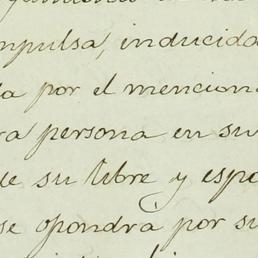 mpulsa, inducida
da por el mencion
ra persona en su
de su libre y espo
se opondra por su